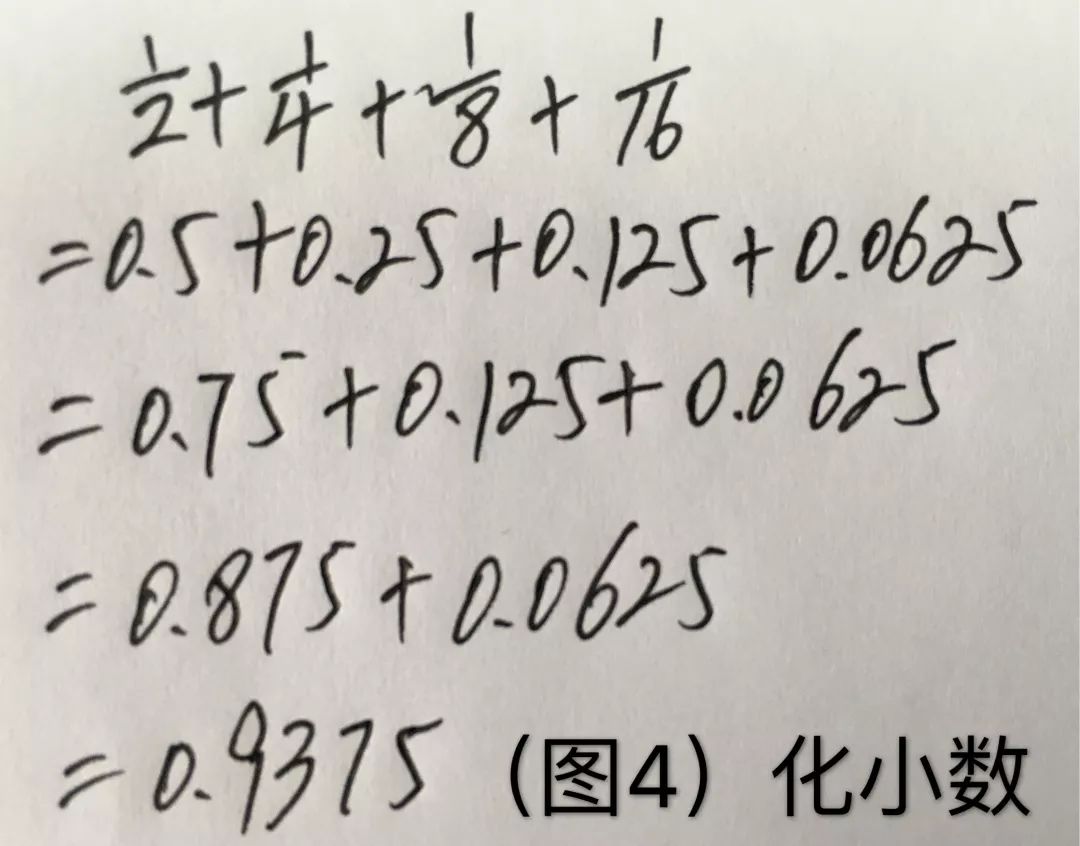 1/2 + 1/4 + 1/8 + 1/16
=0.5+0.25+0.125+0.0625
=0.75+0.125+0.0625
=0.875+0.0625
=0.9375 (图4) 化小数